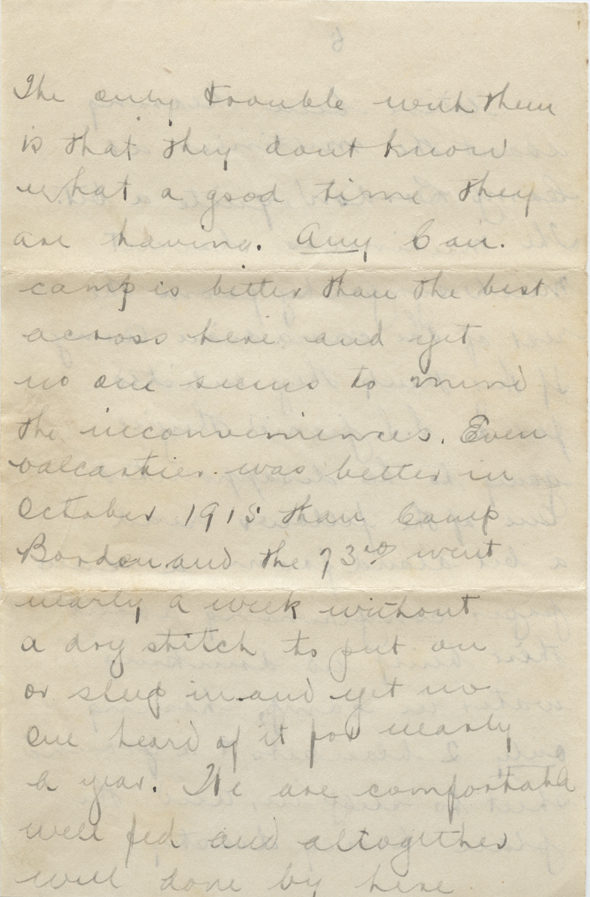 The only trouble with them
is that they dont know
what a good time they
are having. Any Can.
camp is better than the best
across here and yet
no one seems to mind
the inconveniences. Even
valcartier was better in
October 1915 than Camp
Borden and the 73rd went
nearly a week without
a dry stitch to put on
or sleep in and yet no
one heard of it for nearly
a year. We are comfortable
well fed and altogether
well done by here.